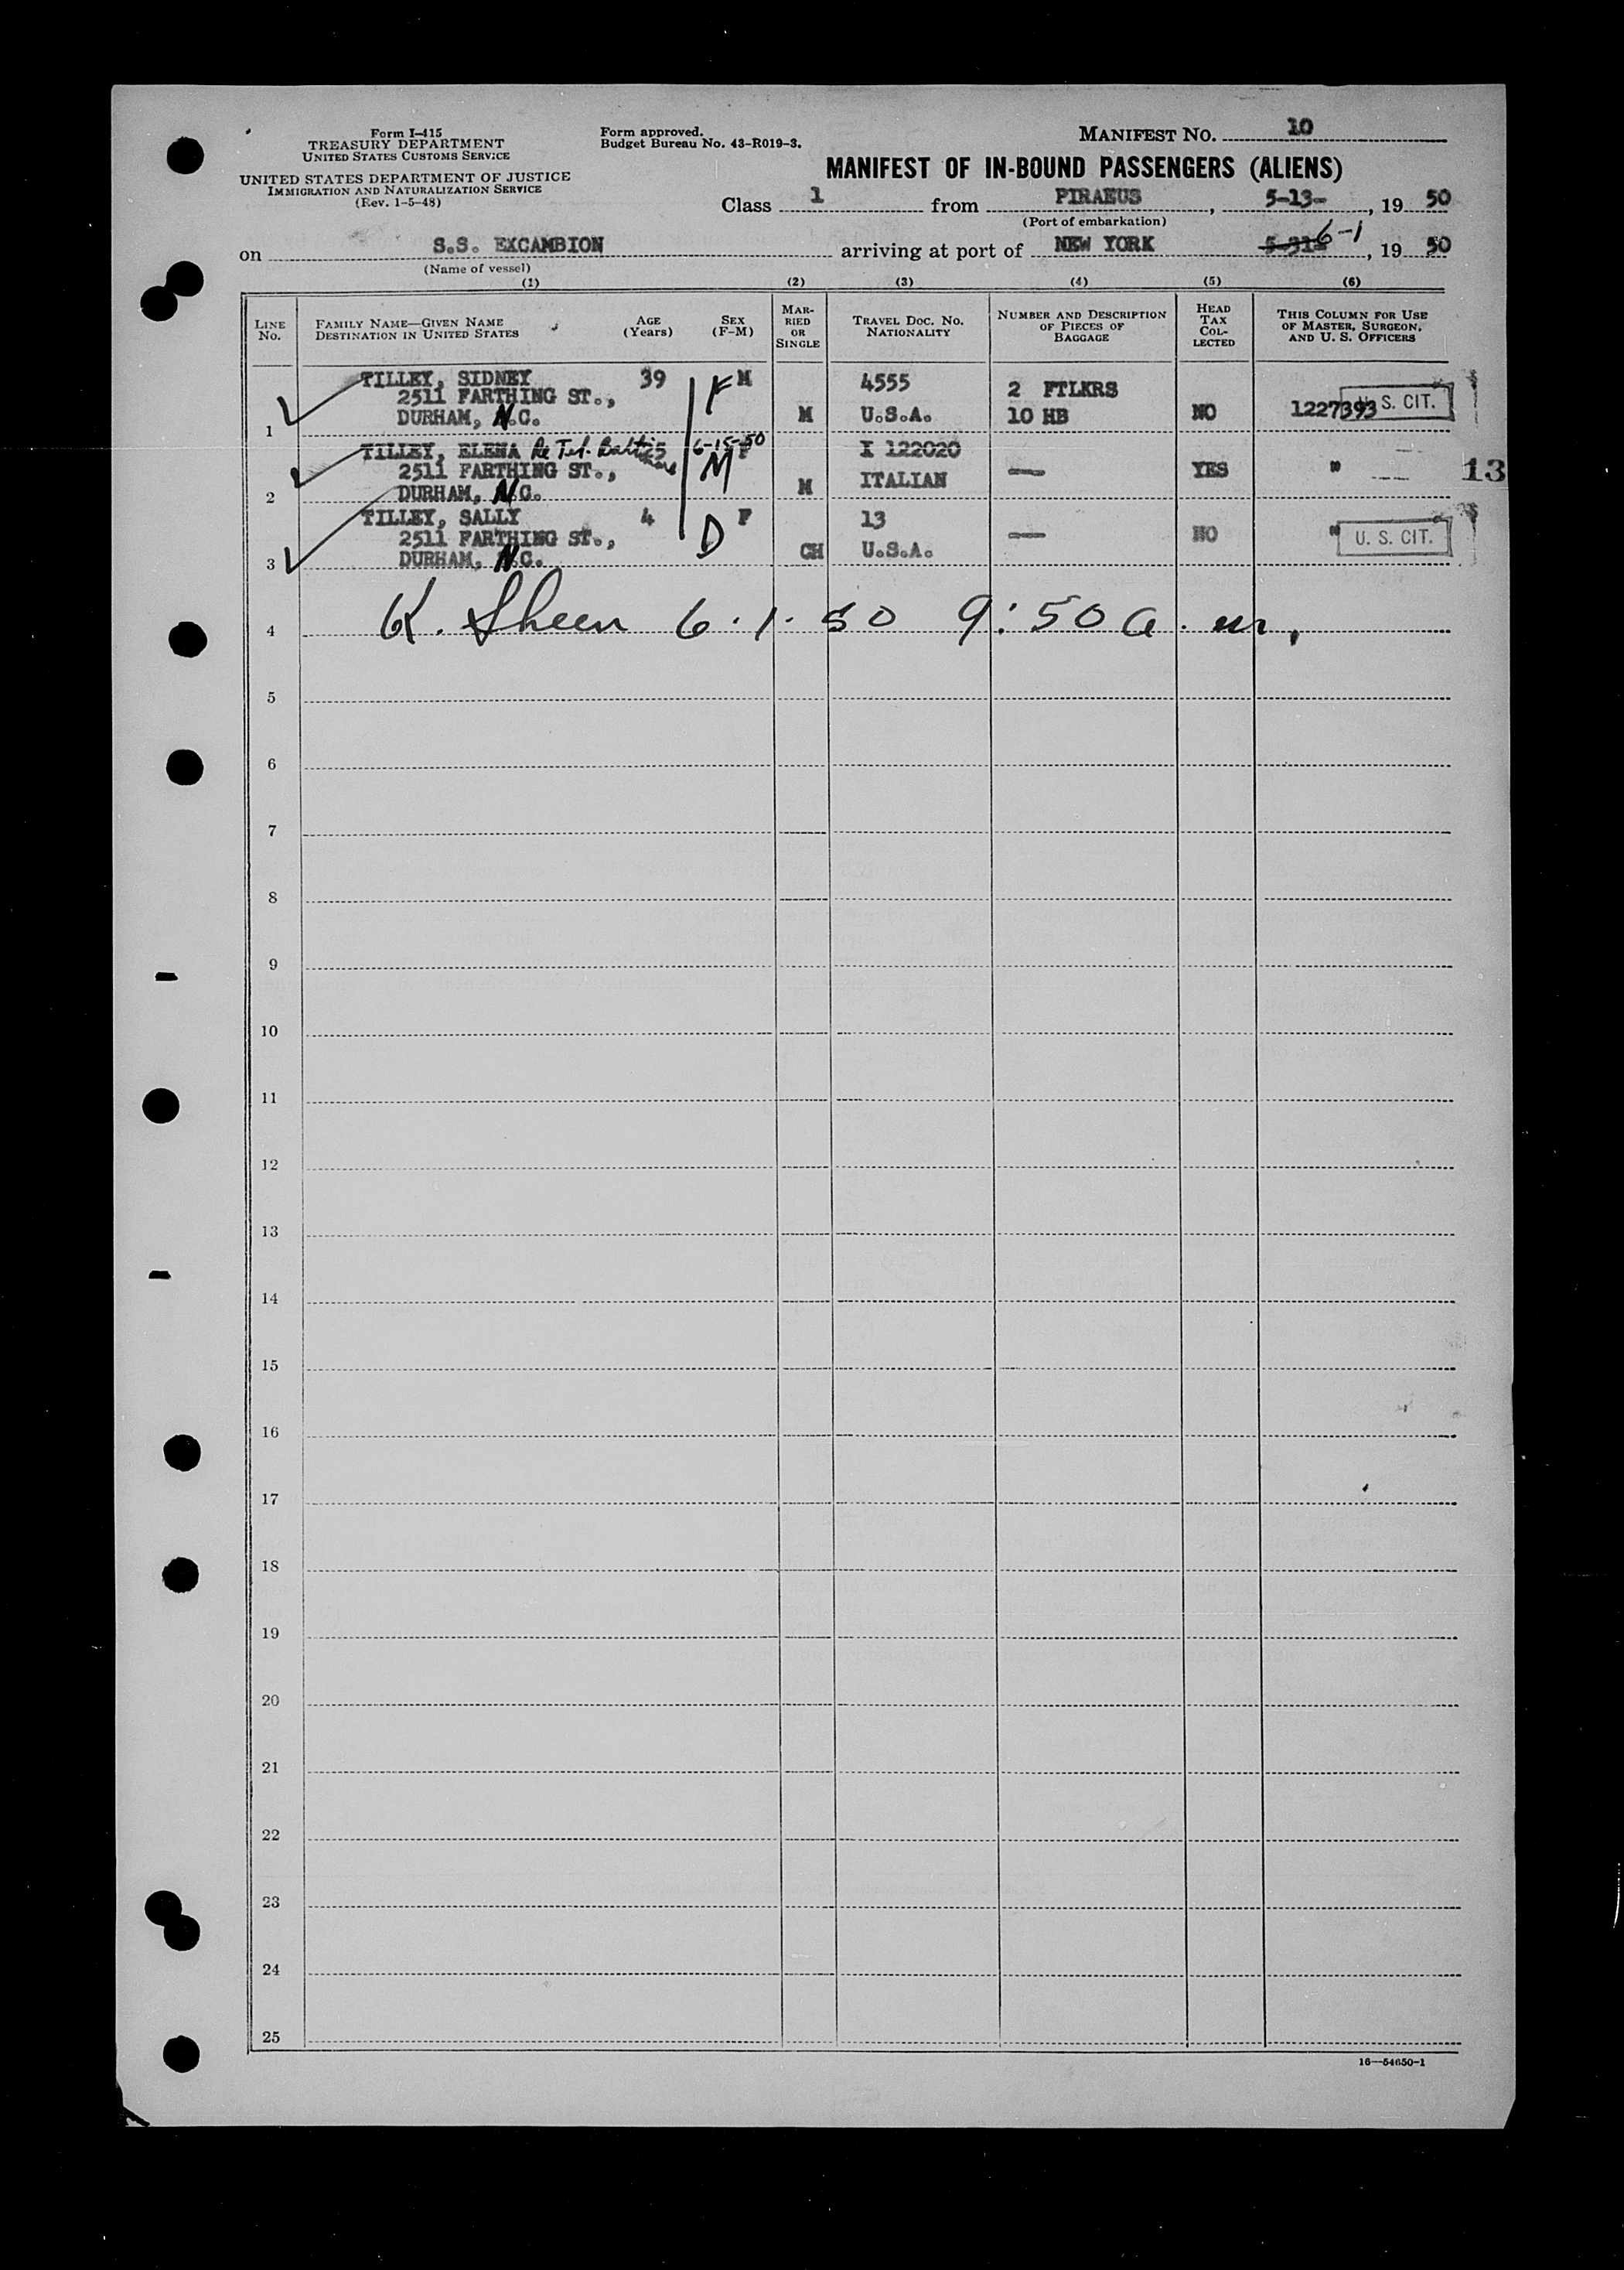 Form I-415
TREASURY DEPARTMENT
UNITED STATES CUSTOMS SERVICE
UNITED STATES DEPARTMENT OF JUSTICE
IMMIGRATION AND NATURALIZATION SERVICE
(Rev. 1-5-48)
Form approved.
Budget Bureau No. 43-R019-3.
MANIFEST NO. 10
MANIFEST OF IN-BOUND PASSENGERS (ALIENS)
Class 1 from PIRAEUS, 5-13-, 19 50
(Port of embarkation)
on S.S. EXCAMBION arriving at port of NEW YORK 5-31- 6-1, 19 50
(Name of vessel)
(1) (2) (3) (4) (5) (6)
LINE NO.
FAMILY NAME—GIVEN NAME
DESTINATION IN UNITED STATES
AGE (Years)
SEX (F-M)
MARRIED OR SINGLE
TRAVEL DOC. NO.
NATIONALITY
NUMBER AND DESCRIPTION OF PIECES OF BAGGAGE
HEAD TAX COLLECTED
THIS COLUMN FOR USE OF MASTER, SURGEON, AND U. S. OFFICERS
TILLEY, SIDNEY 39 F M 4555 2 FTLKRS
2511 FARTHING ST.,
1 DURHAM, N.C. M U.S.A. 10 HB NO 1227393 U. S. CIT.
TILLEY, ELENA Re Tel. 6-15-50 F I 122020
2511 FARTHING ST., M ITALIAN — YES " 13
2 DURHAM, N.C. M
TILLEY, SALLY 4 D F 13
2511 FARTHING ST., — NO " U. S. CIT.
3 DURHAM, N.C. CH U.S.A.
4 K. Sheen 6.1.50 9:50 a.m.
5
6
7
8
9
10
11
12
13
14
15
16
17
18
19
20
21
22
23
24
25
16—54650-1